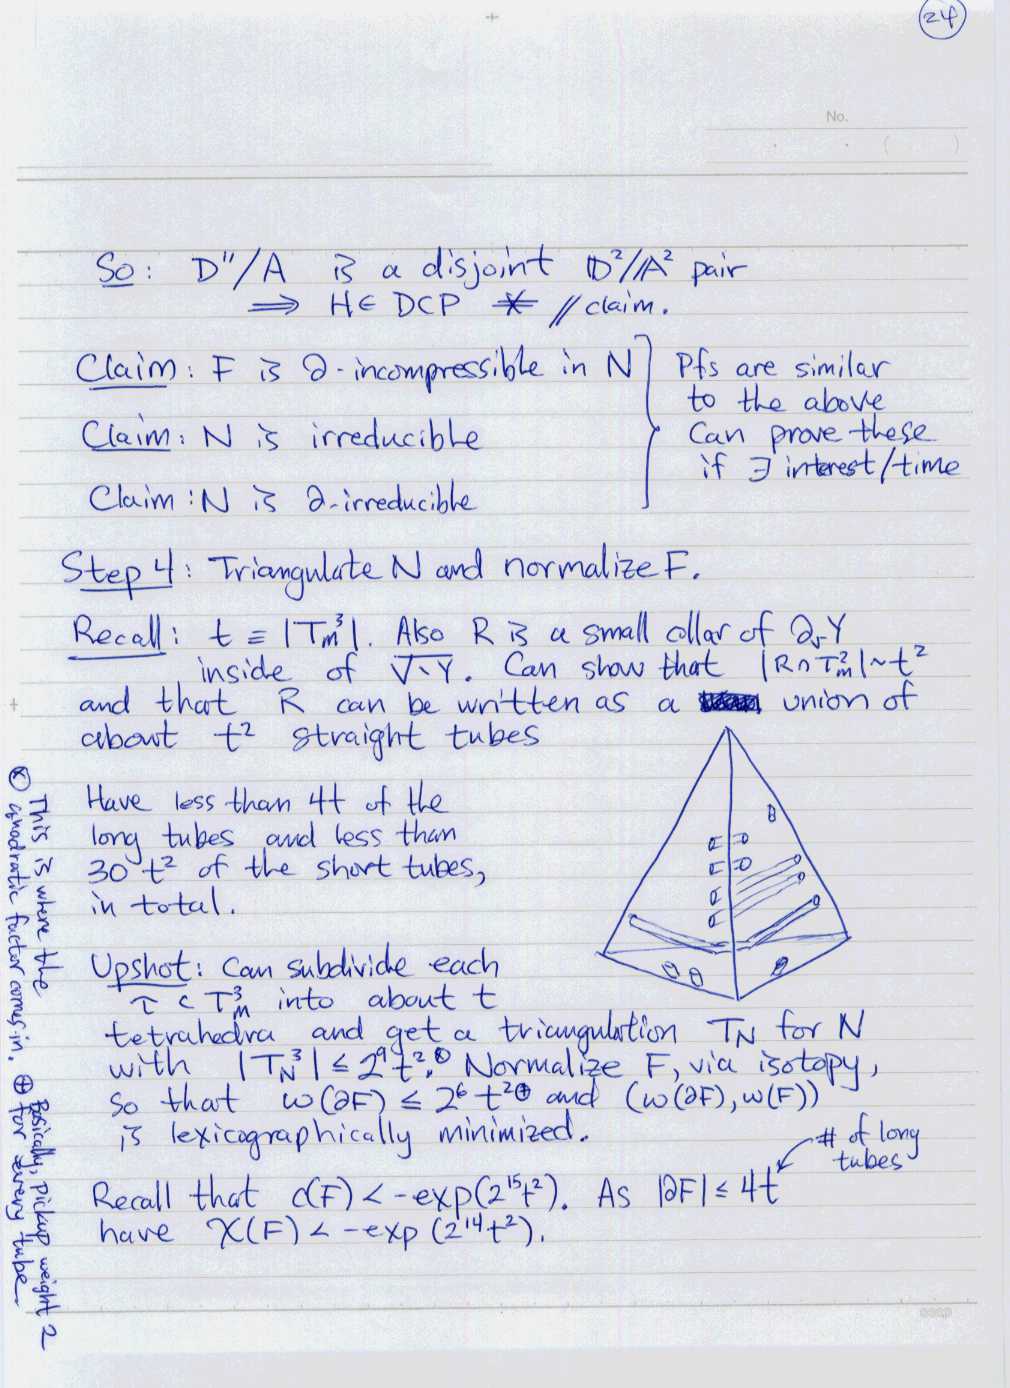 24
No.
So: D"/A is a disjoint D²/A² pair
⇒ H∈ DCP ※ // claim.
Claim: F is ∂-incompressible in N
Claim: N is irreducible
Claim: N is ∂-irreducible
Pfs are similar
to the above
Can prove these
if ∃ interest/time
Step 4: Triangulate N and normalize F.
Recall: t ≡ |T_M³|. Also R is a small collar of ∂_rY
inside of V∖Y. Can show that |R∩T_M²|~t²
and that R can be written as a union of
about t² straight tubes
Have less than 4t of the
long tubes and less than
30 t² of the short tubes,
in total.
Upshot: Can subdivide each
τ ⊂ T_M³ into about t
tetrahedra and get a triangulation T_N for N
with |T_N³| ≤ 2⁹t².⊗ Normalize F, via isotopy,
so that w(∂F) ≤ 2⁶t²⊕ and (w(∂F), w(F))
is lexicographically minimized.
# of long
tubes
Recall that c(F) < -exp(2¹⁵t²). As |∂F| ≤ 4t
have χ(F) < -exp(2¹⁴t²).
⊗ This is where the
quadratic factor comes in.
⊕ Basically, pickup weight 2
for every tube.